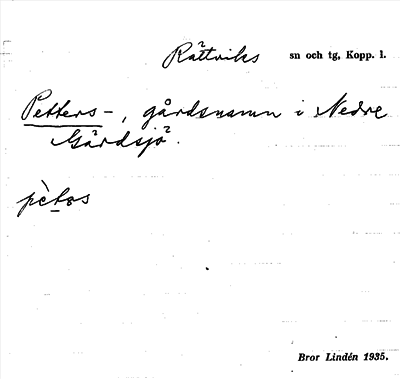 Rättviks sn och tg, Kopp. l.
Petters-, gårdsnamn i Nedre
Gärdsjö.
pètos
Bror Lindén 1935.